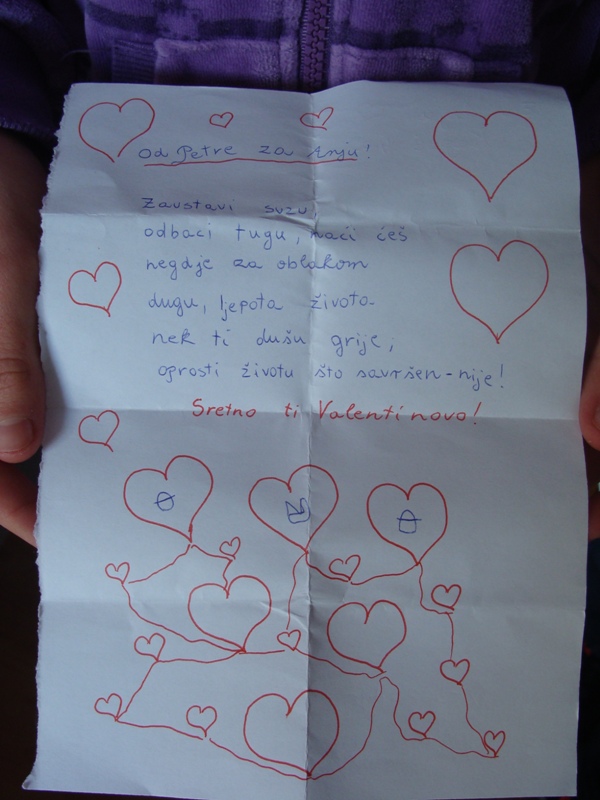 Od Petre za Anju!
Zaustavi suzu,
odbaci tugu, naći ćeš
negdje za oblakom
dugu, ljepota života
nek ti dušu grije,
oprosti životu što savršen-nije!
Sretno ti Valentinovo!